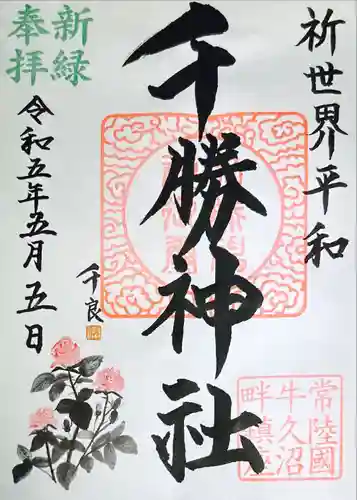 祈世界平和
千勝神社
新緑
奉拝
令和五年五月五日
千良
常陸國
牛久沼
畔鎮座